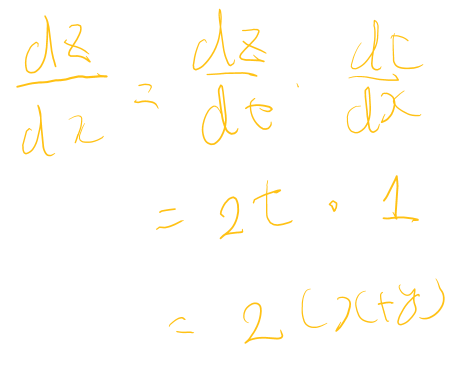 dz/dx = dz/dt · dt/dx
= 2t · 1
= 2(x+y)